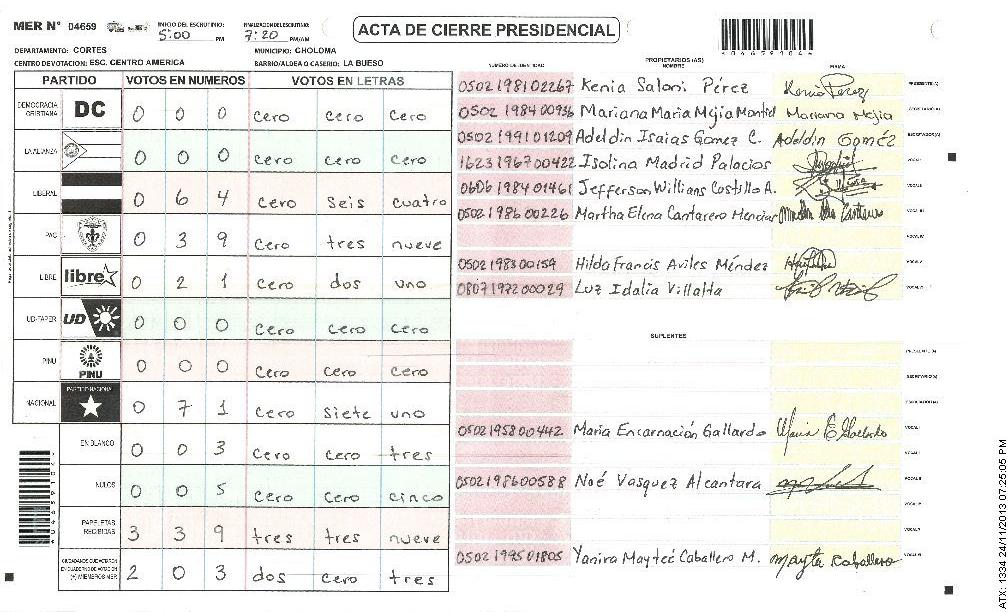 MER N° 04659 INICIO DEL ESCRUTINIO: 5:00 PM FINALIZACION DEL ESCRUTINIO: 7:20 PM/AM
ACTA DE CIERRE PRESIDENCIAL
DEPARTAMENTO: CORTES MUNICIPIO: CHOLOMA
CENTRO DE VOTACION: ESC. CENTRO AMERICA BARRIO/ALDEA O CASERIO: LA BUESO
PARTIDO VOTOS EN NUMEROS VOTOS EN LETRAS
DEMOCRACIA CRISTIANA DC 0 0 0 cero cero cero
LA ALIANZA 0 0 0 cero cero cero
LIBERAL 0 6 4 cero seis cuatro
PAC 0 3 9 cero tres nueve
LIBRE libre 0 2 1 cero dos uno
UD-FAPER UD 0 0 0 cero cero cero
PINU PINU 0 0 0 cero cero cero
NACIONAL PARTIDO NACIONAL 0 7 1 cero siete uno
EN BLANCO 0 0 3 cero cero tres
NULOS 0 0 5 cero cero cinco
PAPELETAS RECIBIDAS 3 3 9 tres tres nueve
CIUDADANOS QUE VOTARON EN CUADERNO DE VOTACION (+) MIEMBROS MER 2 0 3 dos cero tres
PROPIETARIOS (AS)
NUMERO DE IDENTIDAD NOMBRE FIRMA
0502198102267 Kenia Saloni Pérez Kenia Perez PRESIDENTE(A)
0502198400936 Mariana Maria Mejia Montiel Mariana Mejia SECRETARIO(A)
0502199101209 Adeldin Isaias Gomez C. Adeldin Goméz ESCRUTADOR(A)
1623196700422 Isolina Madrid Palacios VOCAL I
0606198401461 Jefferson Willians Costillo A. VOCAL II
0502198600226 Martha Elena Cantarero VOCAL III
VOCAL IV
0502198300159 Hilda Francis Aviles Méndez VOCAL V
0807197200029 Luz Idalia Villalta VOCAL VI
SUPLENTES
PRESIDENTE(A)
SECRETARIO(A)
ESCRUTADOR(A)
0502195800442 Maria Encarnación Gallardo VOCAL I
VOCAL II
0502198600588 Noé Vasquez Alcantara VOCAL III
VOCAL IV
VOCAL V
0502199501805 Yanira Mayteé Caballero M. Mayte Caballero VOCAL VI
ATX: 1334 24/11/2013 07:25:05 PM